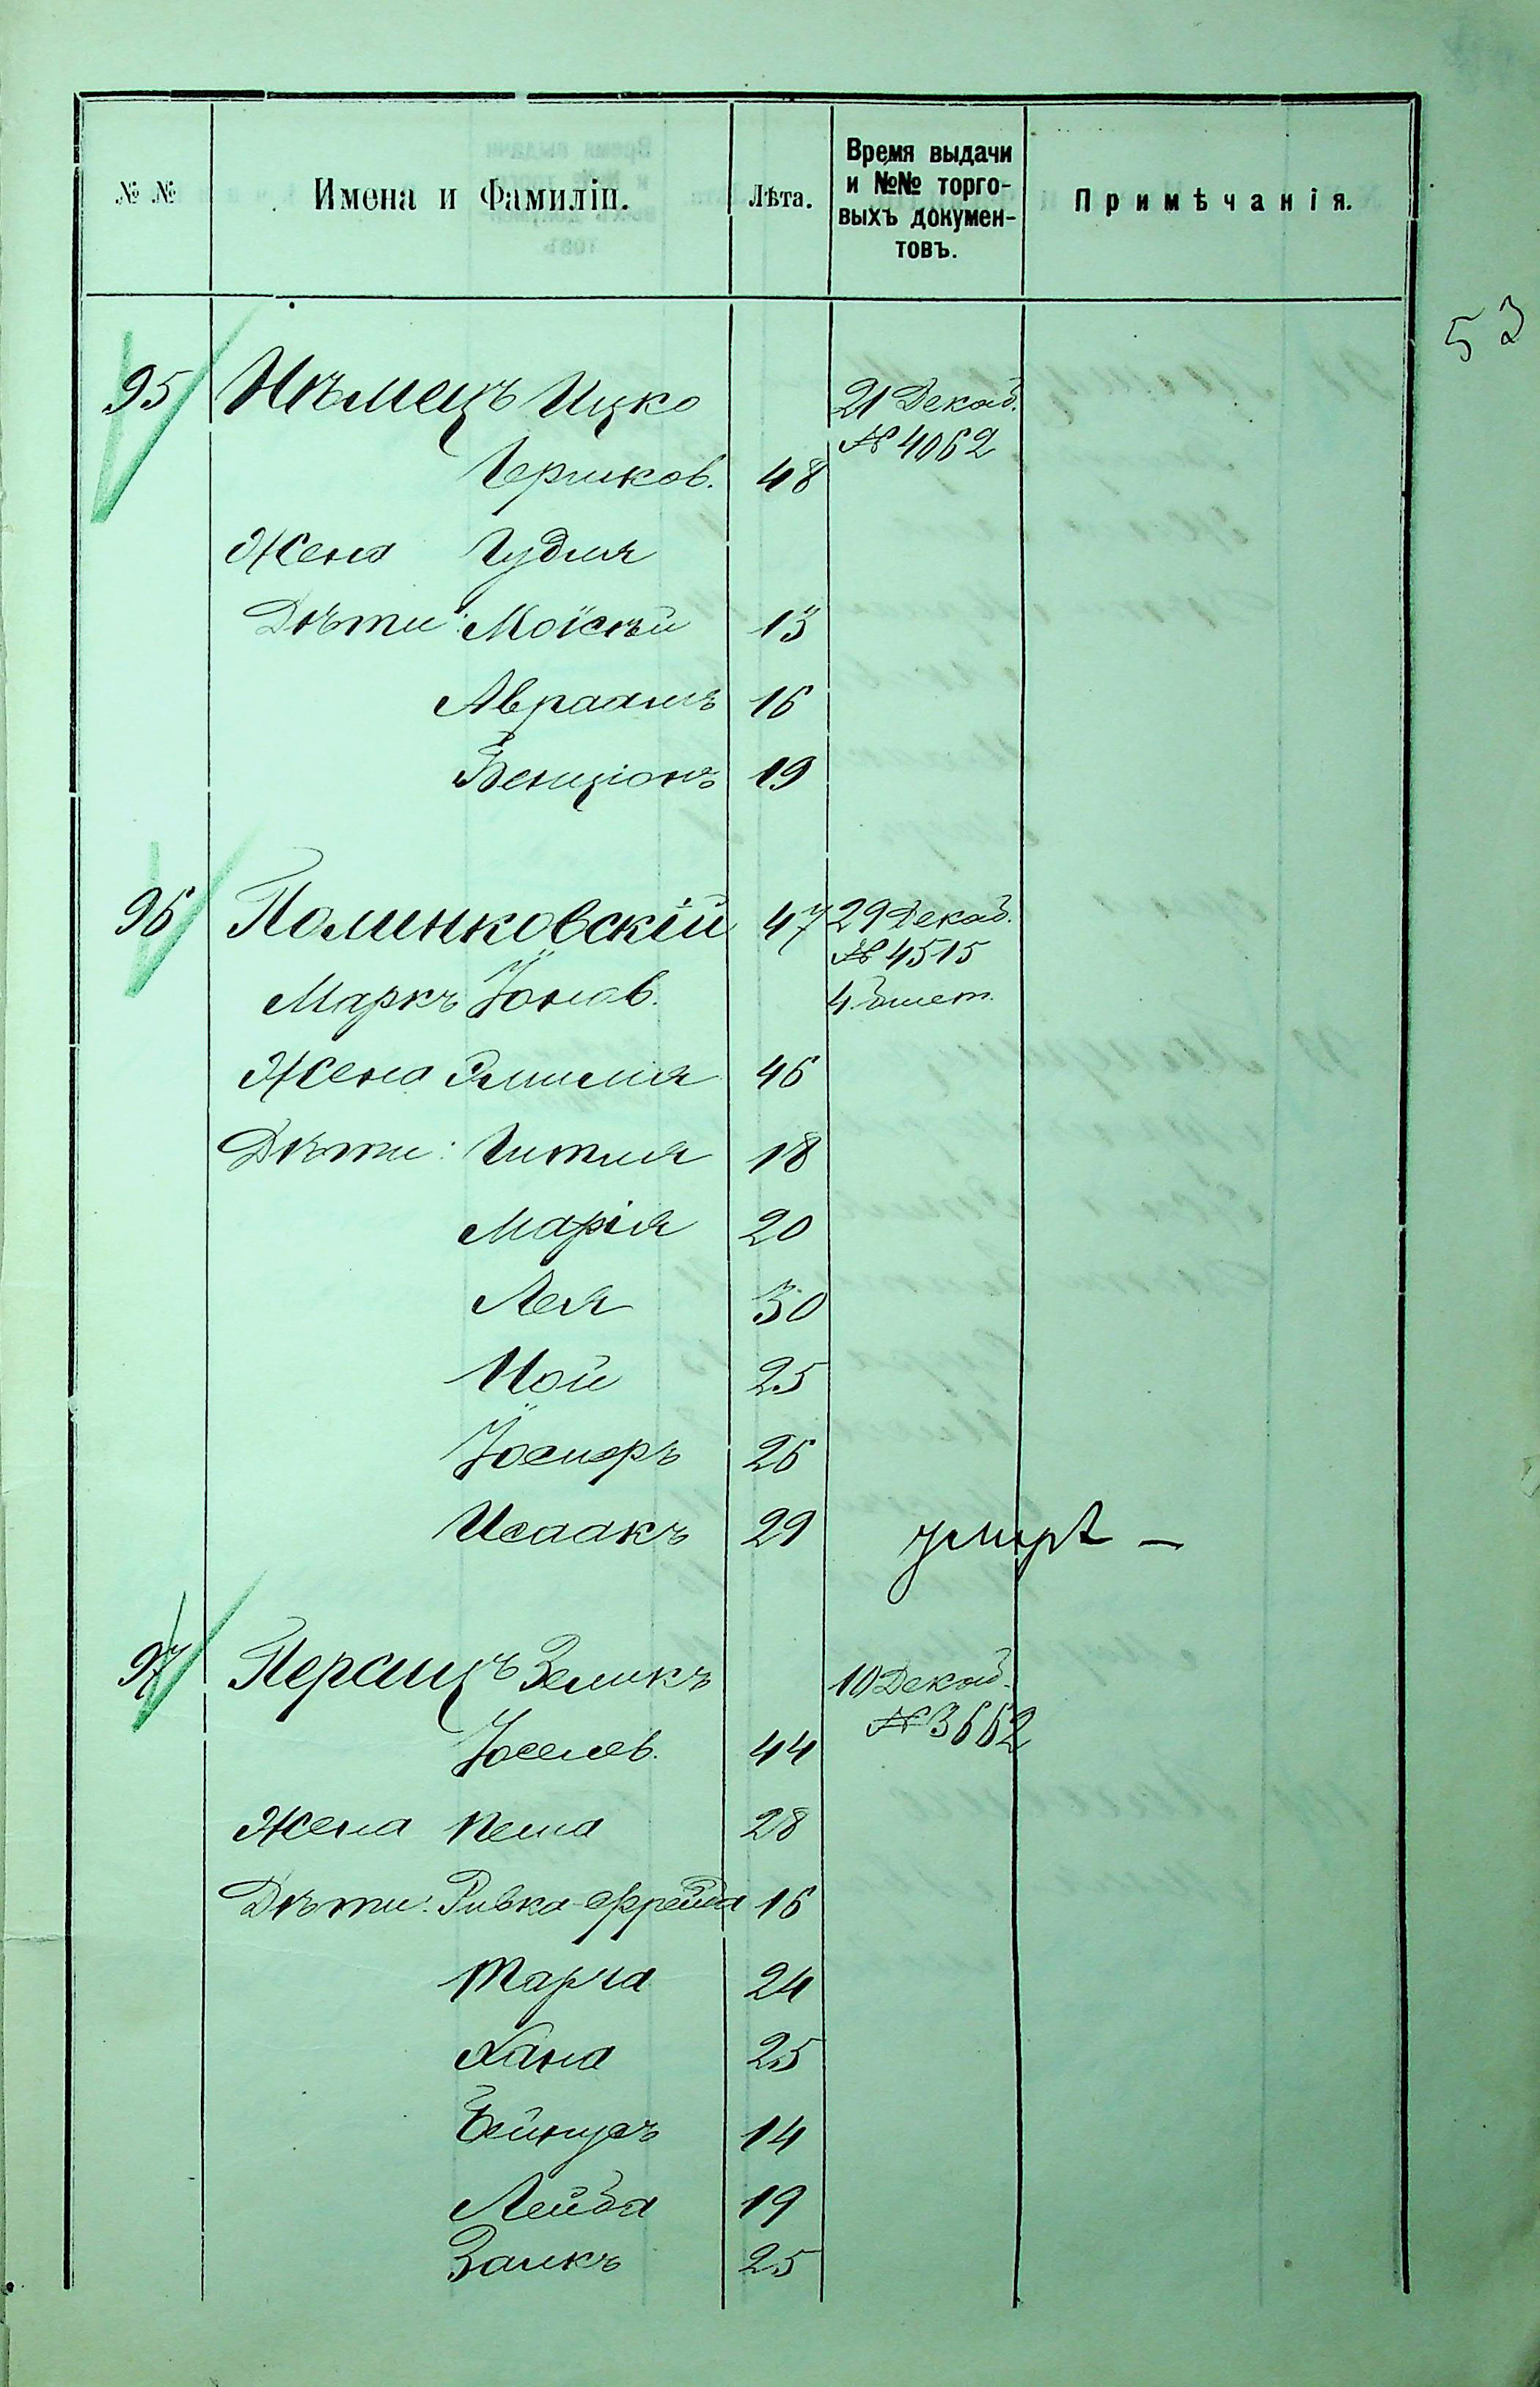 № №
Имена и Фамиліи.
Лѣта.
Время выдачи
и №№ торго-
выхъ докумен-
товъ.
Примѣчанія.
53
95 Нѣмецъ Ицко 21 Декаб.
Гершков. 48 № 4062
Жена Гудля
Дѣти: Моісѣй 13
Авраамъ 16
Бенціонъ 19
96 Полинковскій 47 29 Декаб.
№ 4515
Маркъ Іонов. 4 билет.
Жена Эмилія 46
Дѣти: Гитля 18
Марія 20
Лея 30
Ной 25
Іосифъ 26
Исаакъ 29 умеръ —
97 Персицъ Зеликъ 10 Декаб.
Іоселев. 44 № 3662
Жена Песа 28
Дѣти: Ривка-Фрейда 16
24
Хана 25
Бейнусъ 14
Лейба 19
25